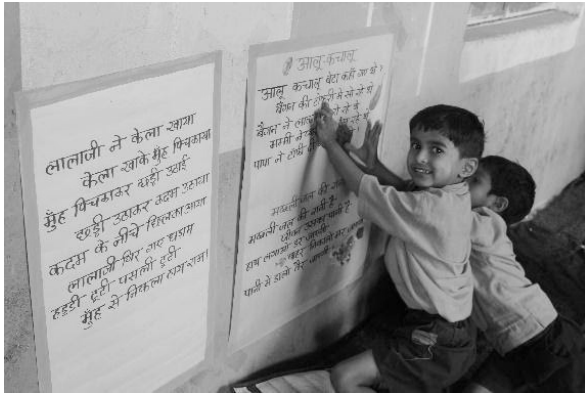 लालाजी ने केला खाया
केला खाके मुँह पिचकाया
मुँह पिचकाकर छड़ी उठाई
छड़ी उठाकर कदम उठाया
कदम के नीचे छिलका आया
लालाजी गिर गए धड़ाम
हड्डी टूटी पसली टूटी
मुँह से निकला हाय राम।
आलू-कचालू
आलू कचालू बेटा कहाँ गए थे?
बैंगन की टोकरी में सो रहे थे
बैंगन ने लात रहे थे
मम्मी ने रहे थे
पापा ने
मछली जल की रानी
मछली जल की रानी है
जीवन उसका पानी है
हाथ लगाओ डर जाएगी
बाहर निकालो मर जाएगी
पानी में डालो तैर जाएगी